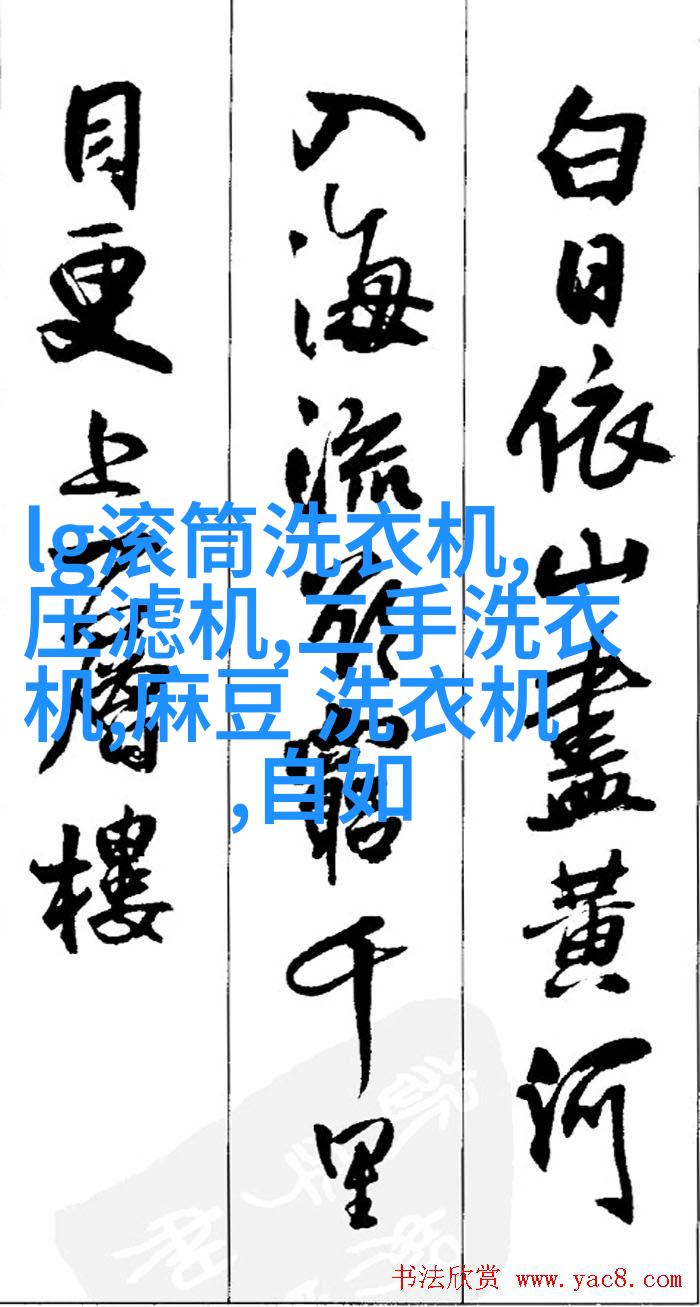 白日依山盡黃河
入海流欲窮千里
目更上一層樓
lg滚筒洗衣机,
压滤机,二手洗衣
机,麻豆 洗衣机
,自如
书法欣赏 www.yac8.com